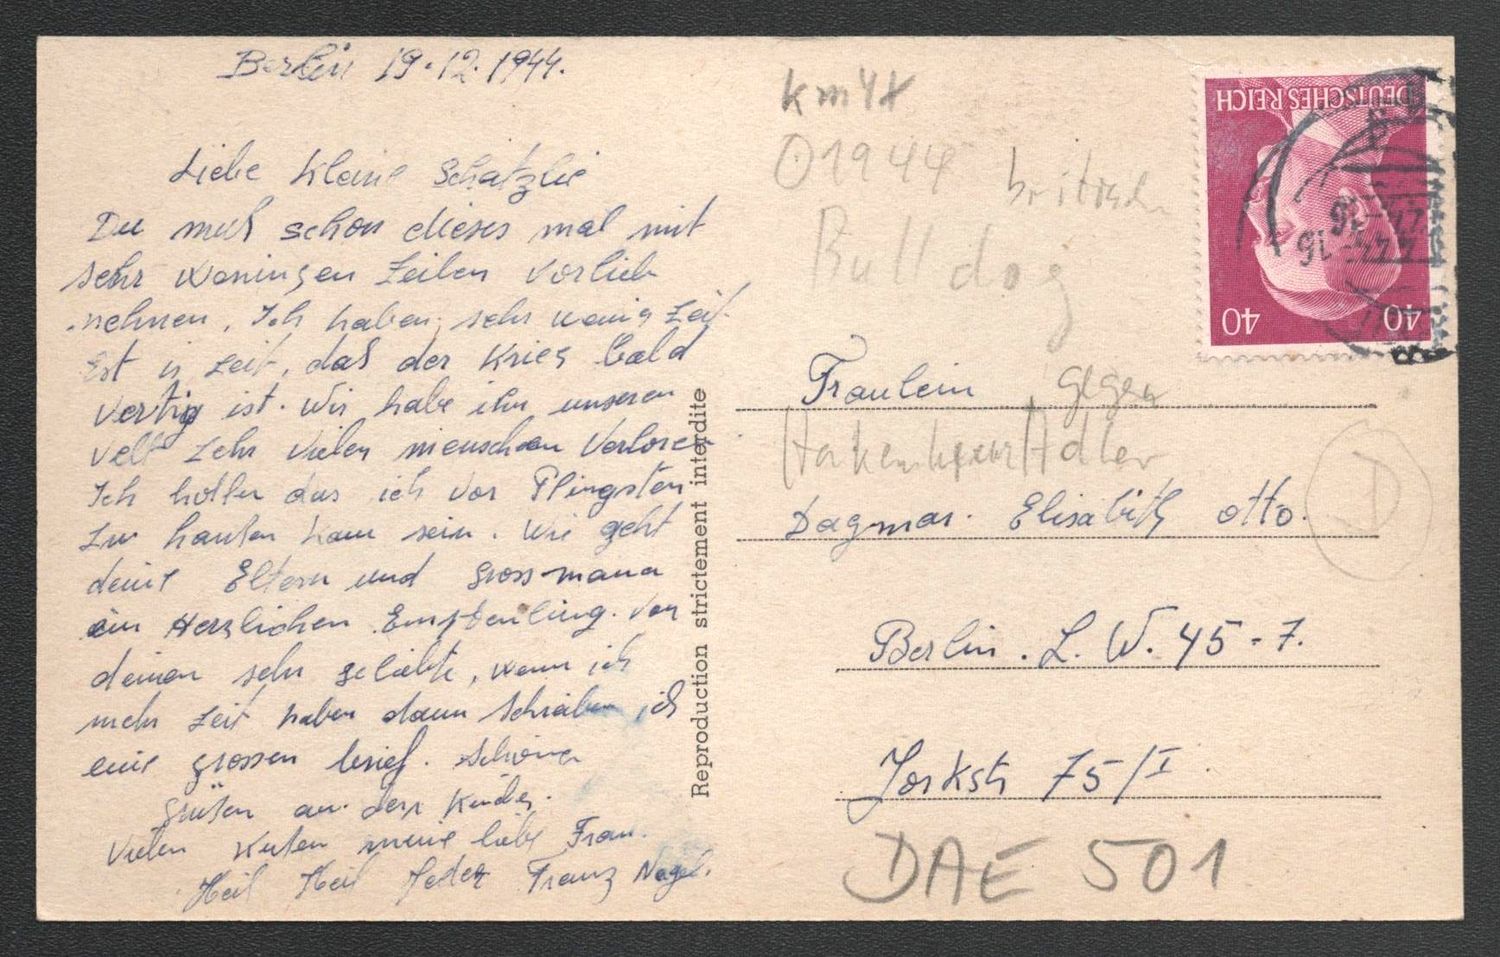 Berlin 19.12.1944.
Liebe kleine Schätzlie
Du mus schon dieses mal mit
sehr Weningen Zeilen vorlieb
nehmen. Ich haben sehr wenig Zeit.
Est is Zeit, das der Krieg bald
Vertig ist. Wir habe ihn unseren
Velt Zehr vielen menschen Verloren
Ich hoffen das ich vor Pfingsten
Zu hausen kann sein. Wie geht
deine Eltern und Grossmana
ein Herzlichen Empfenling. Von
deinen sehr geliebte, wenn ich
mehr Zeit haben dann schreiben ich
eine grossen brief. Schöner
grüsen an der Kinder.
Vielen Küsen meine liebe Frau.
Heil Heil Franz Nagel.
Reproduction strictement interdite
km 4x
01944 britisch
Bulldog
gegen
Hakenkreuz Adler
DEUTSCHES REICH
40 40
Fraulein
Dagmar. Elisabith Otto.
Berlin. L. W. 45-7.
Jorkstr 75/I
DAE 501